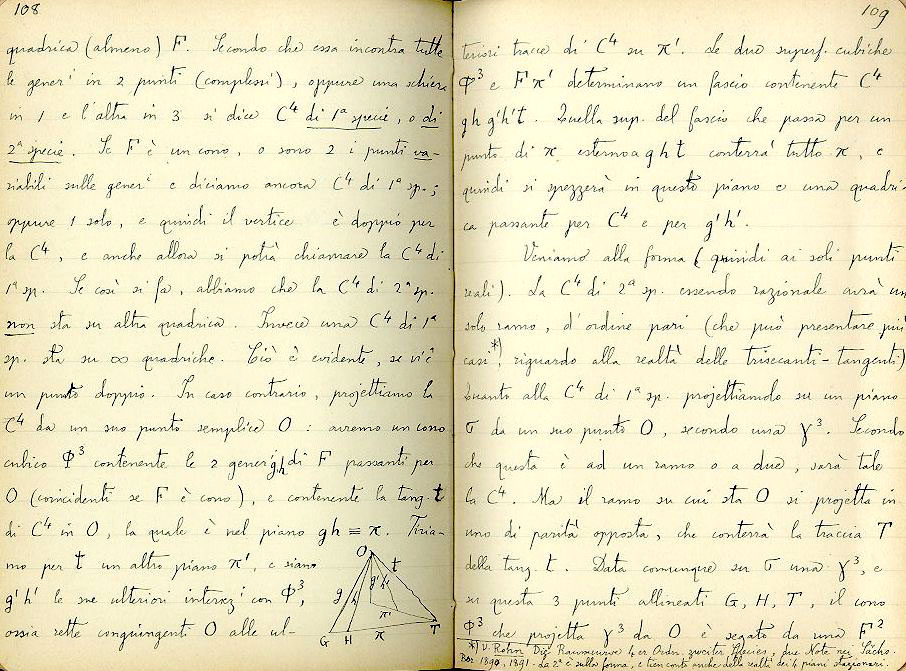 108
quadrica (almeno) F. Secondo che essa incontra tutte
le gener.i in 2 punti (complessi), oppure una schiera
in 1 e l'altra in 3 si dice C⁴ di 1ª specie, o di
2ª specie. Se F è un cono, o sono 2 i punti va-
riabili sulle gener.i e diciamo ancora C⁴ di 1ª sp.;
oppure 1 solo, e quindi il vertice è doppio per
la C⁴, e anche allora si potrà chiamare la C⁴ di
1ª sp. Se così si fa, abbiamo che la C⁴ di 2ª sp.
non sta su altra quadrica. Invece una C⁴ di 1ª
sp. sta su ∞ quadriche. Ciò è evidente, se vi è
un punto doppio. In caso contrario, projettiamo la
C⁴ da un suo punto semplice O : avremo un cono
cubico Φ³ contenente le 2 gener.i gh di F passanti per
O (coincidenti se F è cono), e contenente la tang. t
di C⁴ in O, la quale è nel piano gh ≡ π. Tiria-
mo per t un altro piano π', e siano
g'h' le sue ulteriori intersez.i con Φ³,
ossia rette congiungenti O alle ul-
O t g h g' h' π' G H π T
109
teriori tracce di C⁴ su π'. Le due superf. cubiche
Φ³ e F π' determinano un fascio contenente C⁴
gh g'h't. Quella sup. del fascio che passa per un
punto di π esterno a g h t conterrà tutto π, e
quindi si spezzerà in questo piano e una quadri-
ca passante per C⁴ e per g'h'.
Veniamo alla forma (quindi ai soli punti
reali). La C⁴ di 2ª sp. essendo razionale avrà un
solo ramo, d'ordine pari (che può presentare più
casi*) riguardo alla realtà delle trisecanti-tangenti)
Quanto alla C⁴ di 1ª sp. projettiamola su un piano
σ da un suo punto O, secondo una γ³. Secondo
che questa è ad un ramo o a due, sarà tale
la C⁴. Ma il ramo su cui sta O si projetta in
uno di parità opposta, che conterrà la traccia T
della tang. t. Data comunque su σ una γ³, e
su questa 3 punti allineati G, H, T, il cono
Φ³ che projetta γ³ da O è segato da una F²
*) V. Rohn Die Raumcurve 4. er Ordn. zweiter Species, due Note nei Sächs.
Ber 1890, 1891 - La 2ª è sulla forma, e tien conto anche della realtà dei 4 piani stazionari.